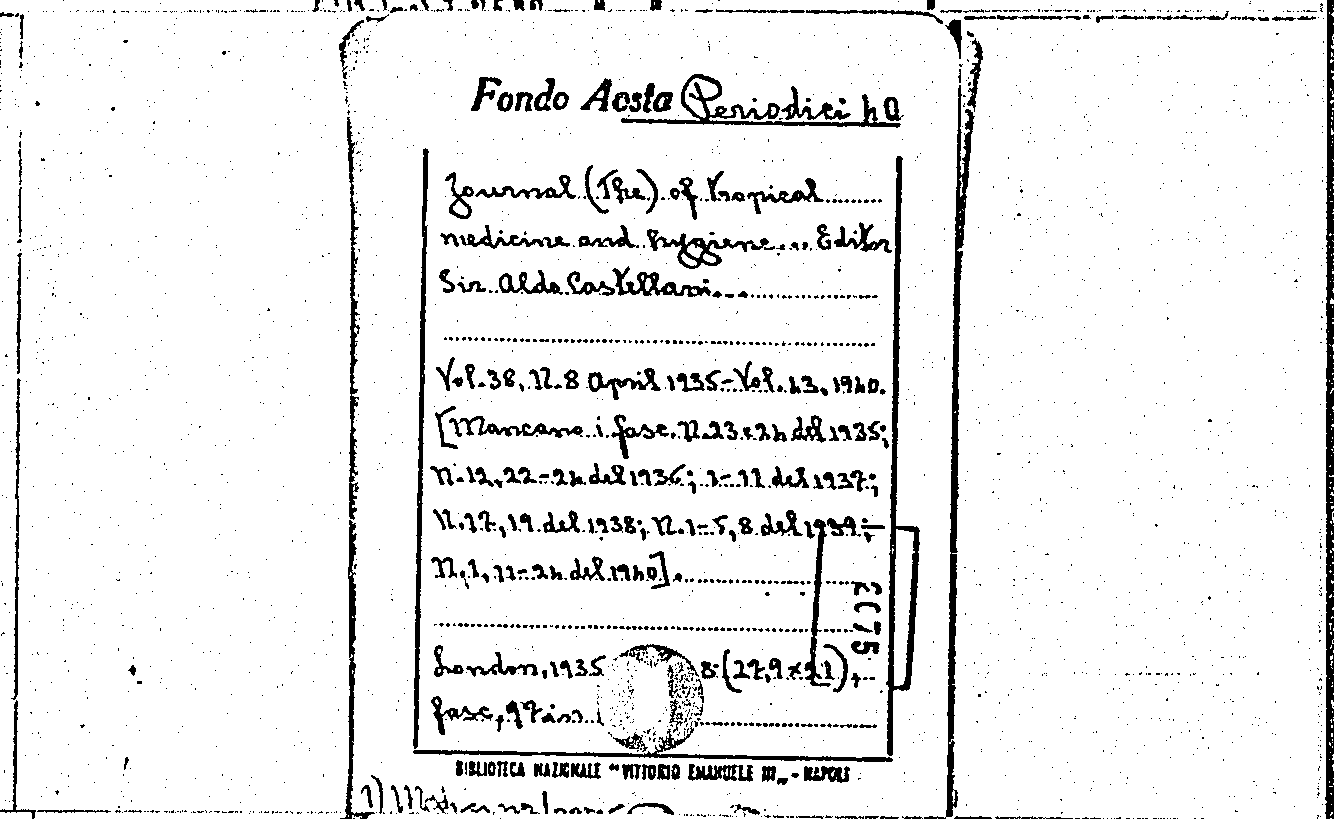 Fondo Aosta Periodici 40
Journal (The) of tropical
medicine and hygiene... Editor
Sir Aldo Castellani...
Vol. 38, N. 8 April 1935-Vol. 43, 1940.
[Mancano i fasc. N. 23 e 24 del 1935;
N. 12, 22-24 del 1936; 1-11 del 1937;
N. 17, 19 del 1938; N. 1-5, 8 del 1939;
N. 1, 11-24 del 1940].
2075
London, 1935 8: (27,9 x 21),
fasc, 97 in
BIBLIOTECA NAZIONALE "VITTORIO EMANUELE III" - NAPOLI